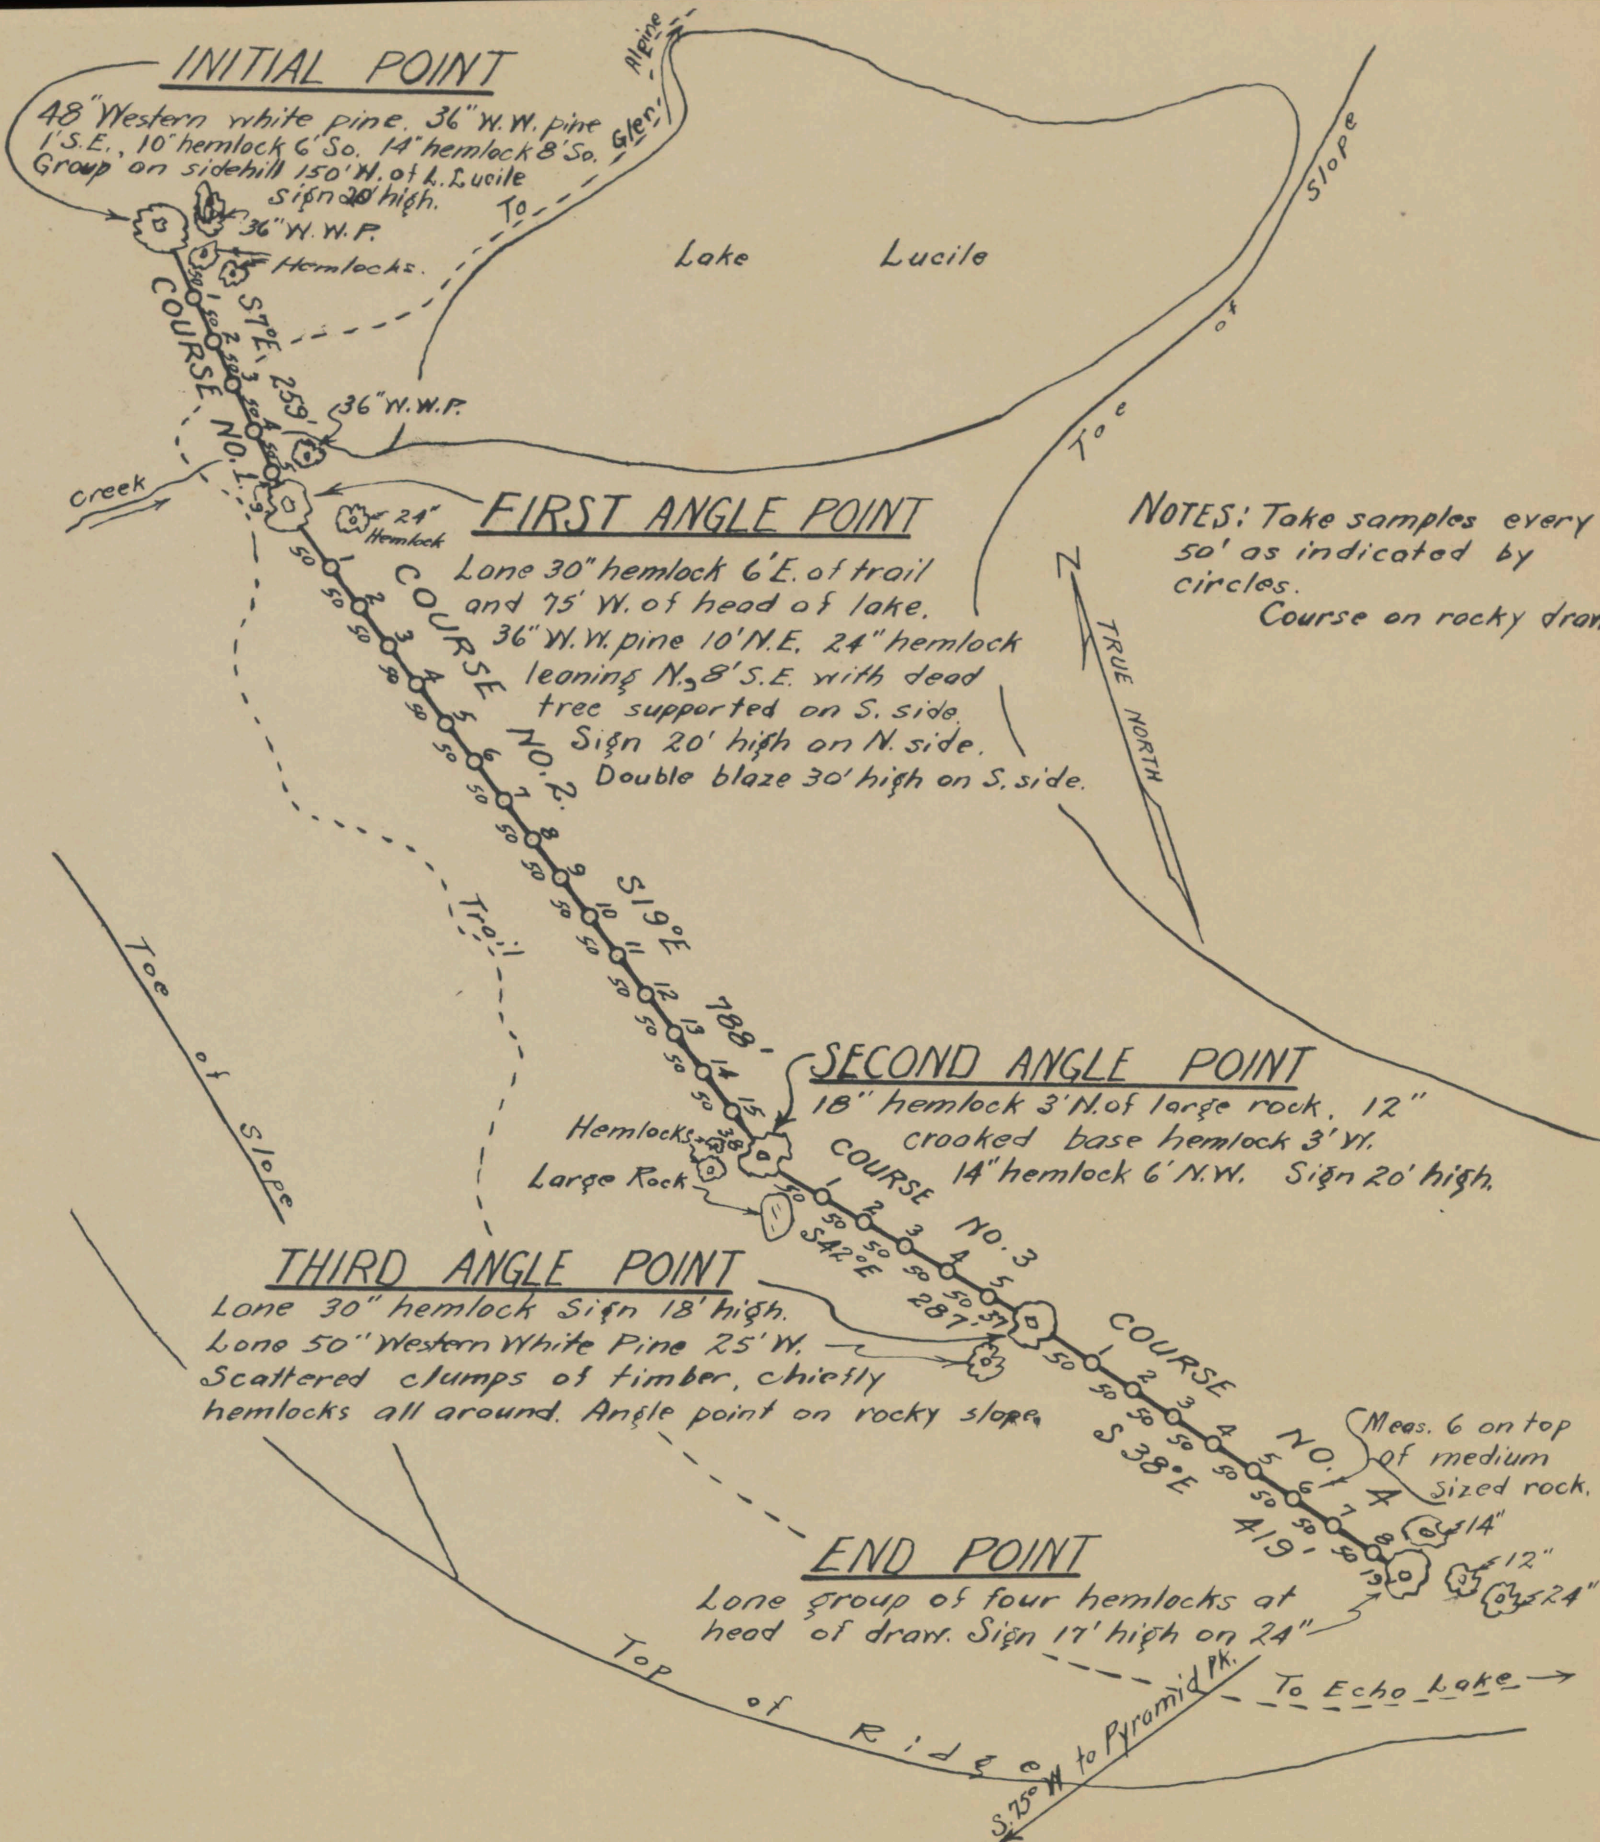 INITIAL POINT
48" Western white pine. 36" W.W. pine
1' S.E., 10" hemlock 6' So. 14" hemlock 8' So.
Group on sidehill 150' W. of L. Lucile
sign 20' high.
36" W.W.P.
Hemlocks.
To Glen Alpine
Lake Lucile
Toe of Slope
COURSE NO. 1.
S7°E, 259'
50 1
50 2
50 3
50 4
50 5
9
36" W.W.P.
Creek
24"
Hemlock
FIRST ANGLE POINT
Lone 30" hemlock 6' E. of trail
and 75' W. of head of lake.
36" W.W. pine 10' N.E. 24" hemlock
leaning N., 8' S.E. with dead
tree supported on S. side.
Sign 20' high on N. side.
Double blaze 30' high on S. side.
NOTES: Take samples every
50' as indicated by
circles.
Course on rocky draw
N
TRUE NORTH
COURSE NO. 2.
S19°E 788'
50 1
50 2
50 3
50 4
50 5
50 6
50 7
50 8
50 9
50 10
50 11
50 12
50 13
50 14
50 15
38
Trail
Toe of Slope
SECOND ANGLE POINT
18" hemlock 3' N. of large rock. 12"
crooked base hemlock 3' W.
14" hemlock 6' N.W. Sign 20' high.
Hemlocks
Large Rock
COURSE NO. 3
S42°E 287'
50 1
50 2
50 3
50 4
50 5
37
THIRD ANGLE POINT
Lone 30" hemlock Sign 18' high.
Lone 50" Western White Pine 25' W.
Scattered clumps of timber, chiefly
hemlocks all around. Angle point on rocky slope.
COURSE NO. 4
S 38°E 419'
50 1
50 2
50 3
50 4
50 5
50 6
50 7
50 8
19
Meas. 6 on top
of medium
sized rock.
14"
12"
24"
END POINT
Lone group of four hemlocks at
head of draw. Sign 17' high on 24"
To Echo Lake
S. 75° W to Pyramid Pk.
Top of Ridge